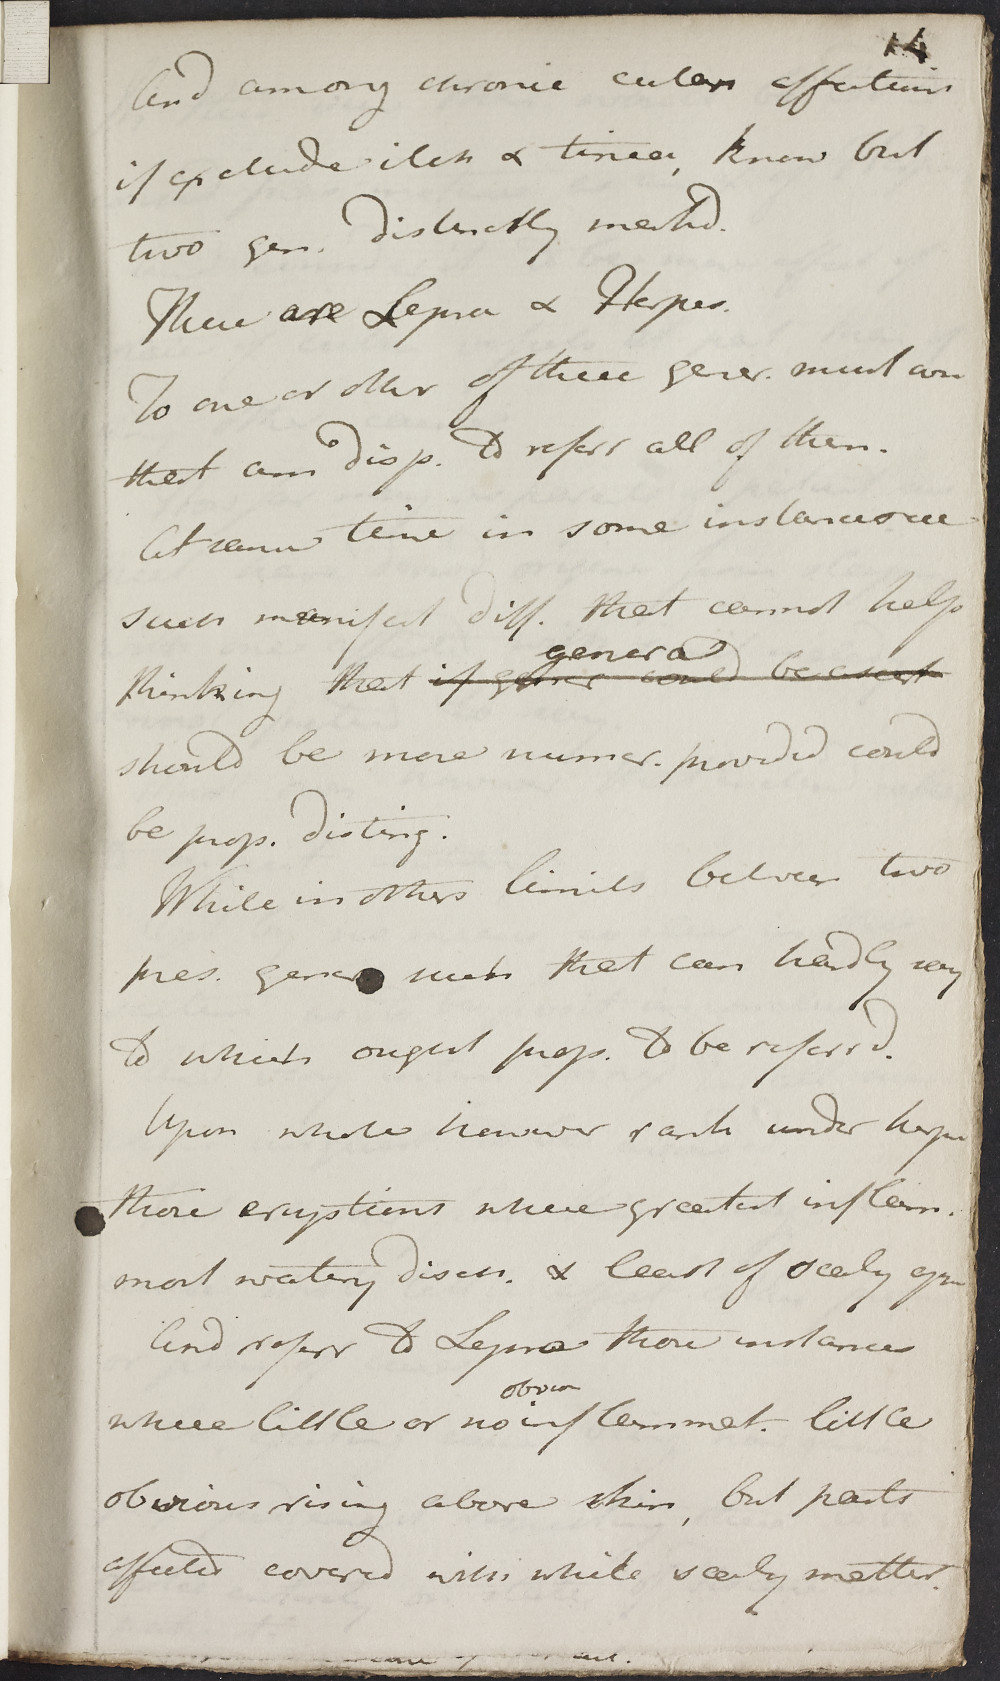 14
And among chronic cutan affections
if exclude itch & tinea, know but
two gen. distinctly mark'd.
These are Lepra & Herpes.
To one or other of these gener. must own
that am disp. to referr all of them.
At same time in some instances see
such manifest diff. that cannot help
genera
thinking that if gener could be ascert
should be more numer. provided could
be prop. disting.
While in others limits between two
pres. genera such that can hardly say
to which ought prop. to be referr'd.
Upon whole however rank under herpes
those eruptions where greatest inflam.
most watery disch. & least of scaly app
And referr to Lepra those instances
obviou
where little or no inflammat. little
obvious rising above skin, but parts
affected covered with white scaly matter.